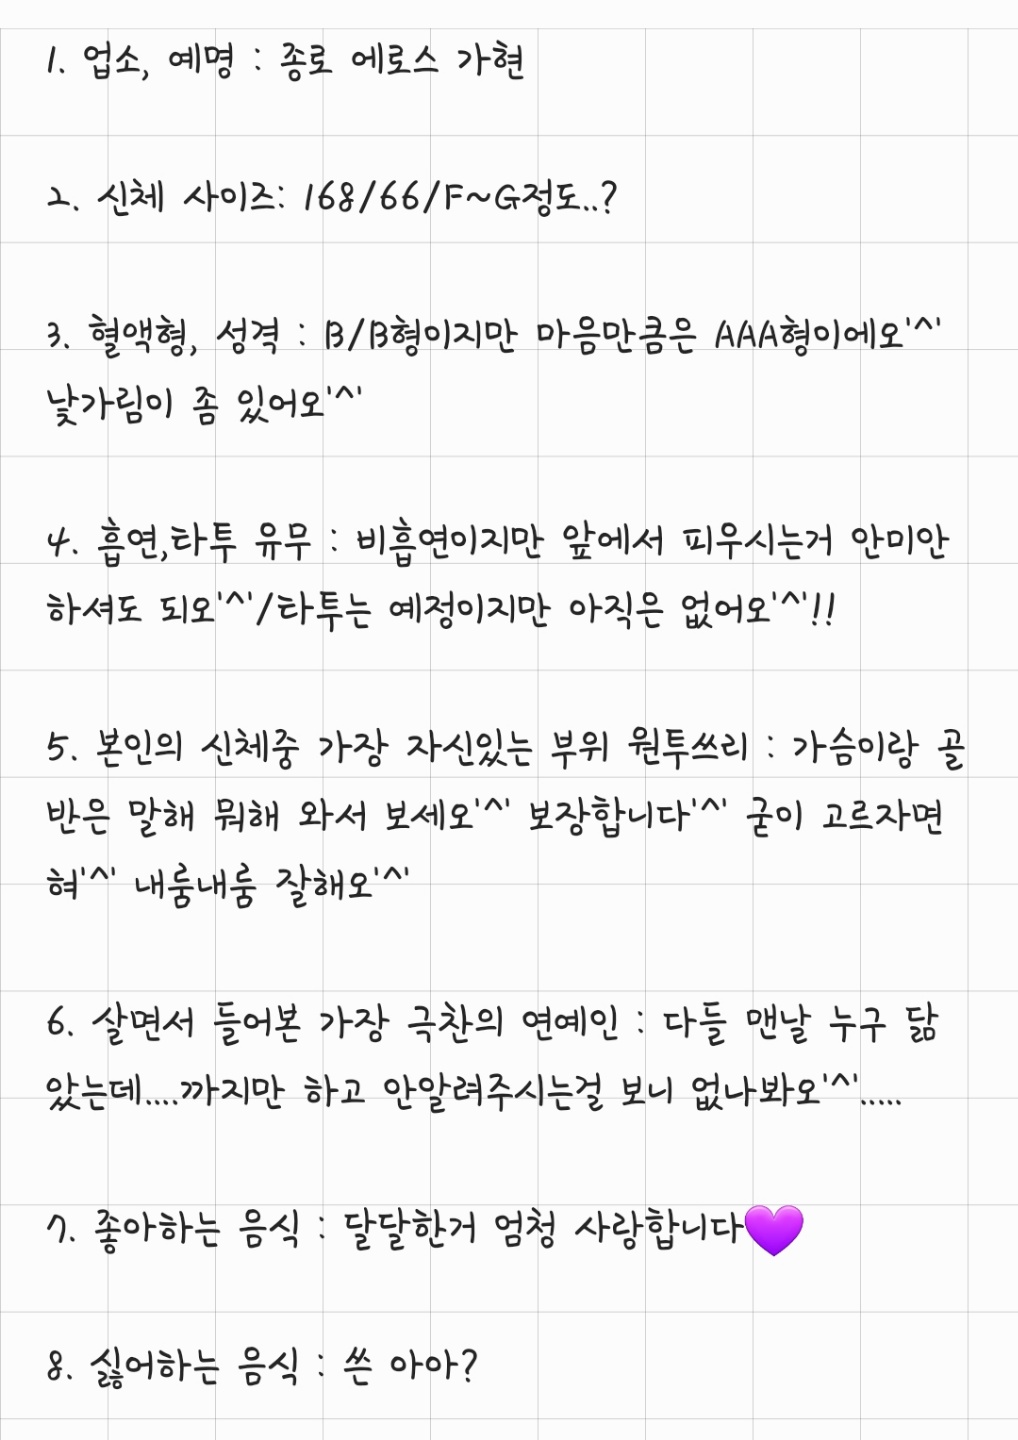 1. 업소, 예명 : 종로 에로스 가현
2. 신체 사이즈: 168/66/F~G정도..?
3. 혈액형, 성격 : B/B형이지만 마음만큼은 AAA형이에오'^'
낯가림이 좀 있어오'^'
4. 흡연,타투 유무 : 비흡연이지만 앞에서 피우시는거 안미안
하셔도 되오'^'/타투는 예정이지만 아직은 없어오'^'!!
5. 본인의 신체중 가장 자신있는 부위 원투쓰리 : 가슴이랑 골
반은 말해 뭐해 와서 보세오'^' 보장합니다'^' 굳이 고르자면
혀'^' 내룸내룸 잘해오'^'
6. 살면서 들어본 가장 극찬의 연예인 : 다들 맨날 누구 닮
았는데....까지만 하고 안알려주시는걸 보니 없나봐오'^'.....
7. 좋아하는 음식 : 달달한거 엄청 사랑합니다💜
8. 싫어하는 음식 : 쓴 아아?